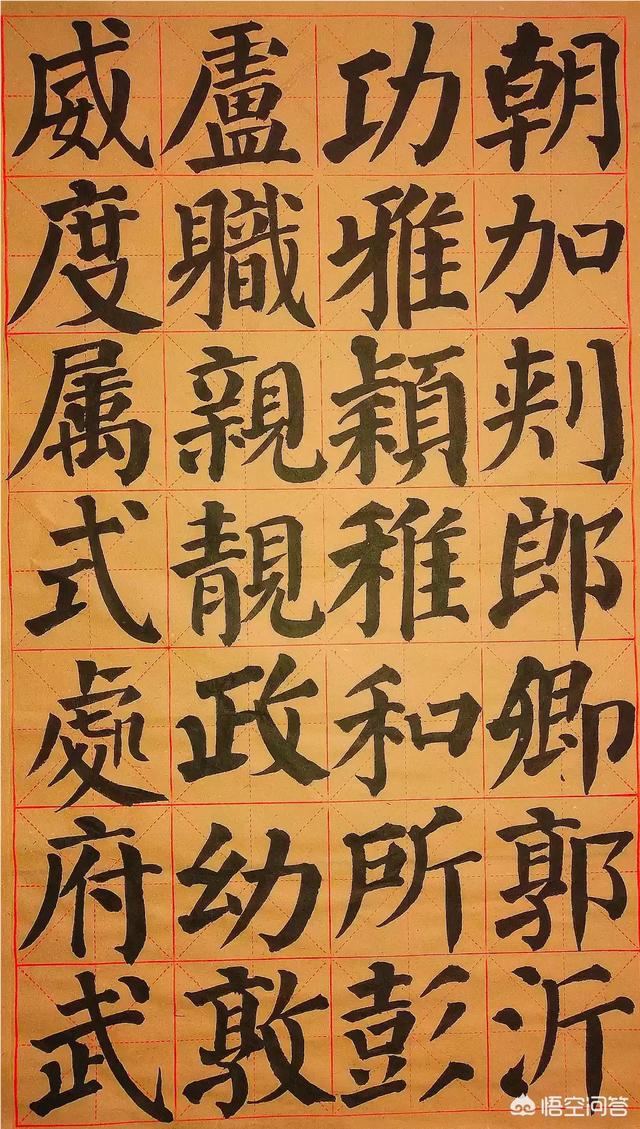 朝加刾郎卿郭沂
功雅穎稚和所彭
盧職親靚政幼敦
威度属式處府武
悟空问答